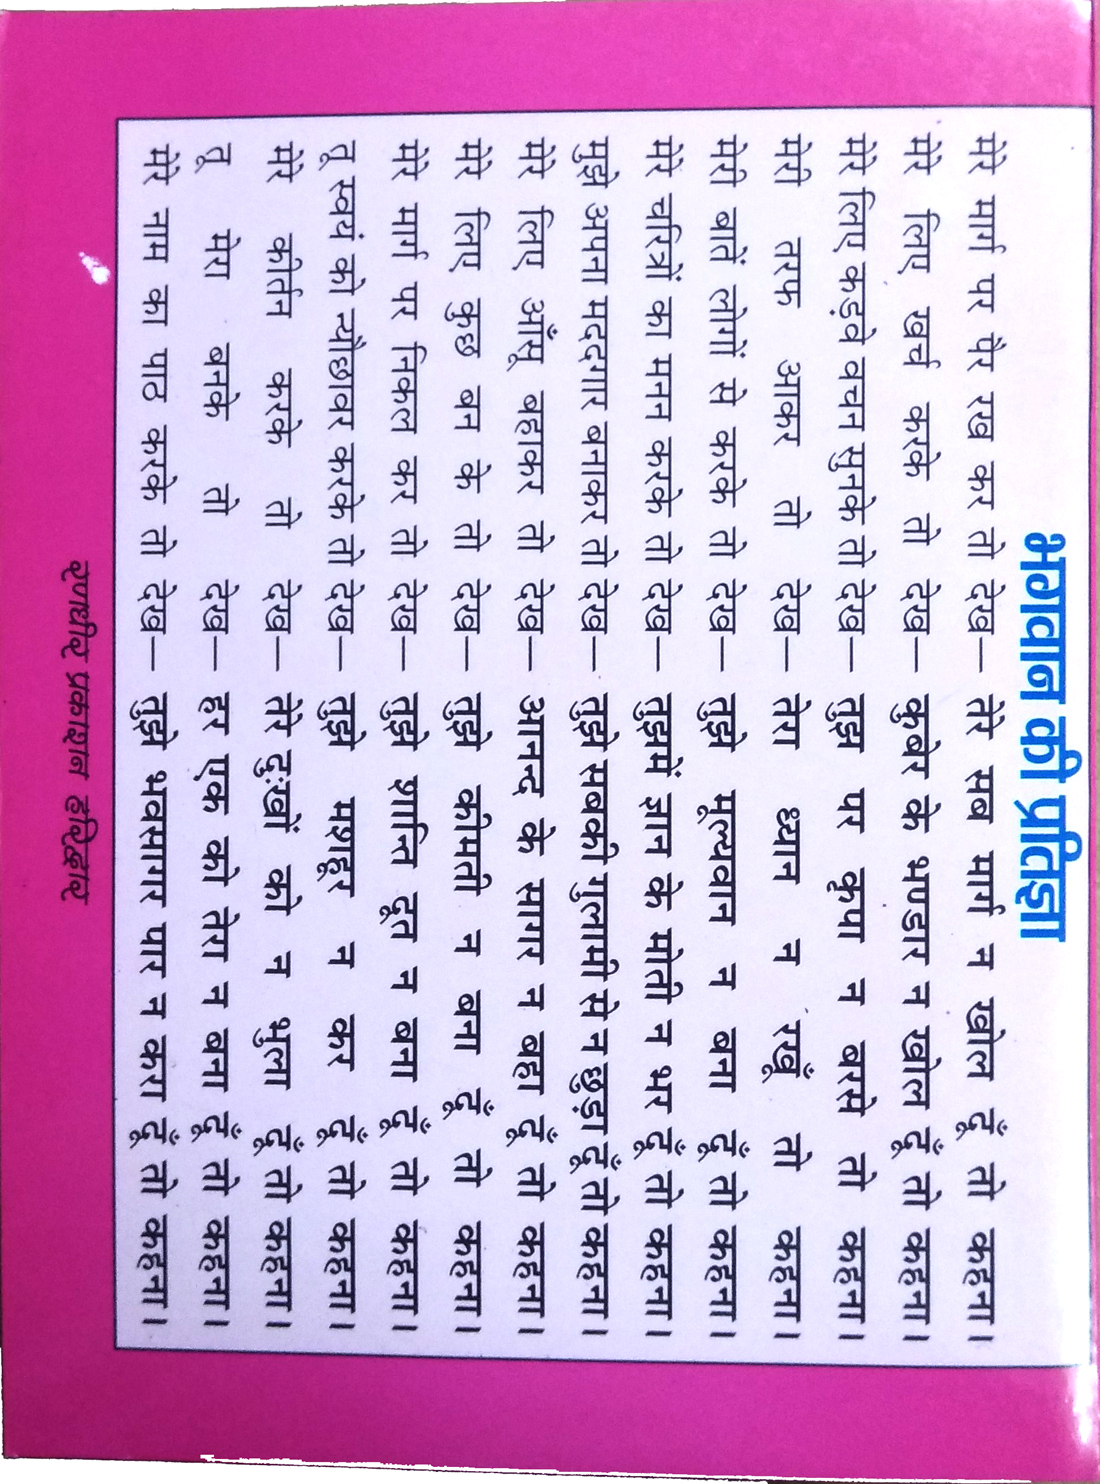 भगवान की प्रतिज्ञा
मेरे मार्ग पर पैर रख कर तो देख— तेरे सब मार्ग न खोल दूँ तो कहना।
मेरे लिए खर्च करके तो देख— कुबेर के भण्डार न खोल दूँ तो कहना।
मेरे लिए कड़वे वचन सुनके तो देख— तुझ पर कृपा न बरसे तो कहना।
मेरी तरफ आकर तो देख— तेरा ध्यान न रखूँ तो कहना।
मेरी बातें लोगों से करके तो देख— तुझे मूल्यवान न बना दूँ तो कहना।
मेरे चरित्रों का मनन करके तो देख— तुझमें ज्ञान के मोती न भर दूँ तो कहना।
मुझे अपना मददगार बनाकर तो देख— तुझे सबकी गुलामी से न छुड़ा दूँ तो कहना।
मेरे लिए आँसू बहाकर तो देख— आनन्द के सागर न बहा दूँ तो कहना।
मेरे लिए कुछ बन के तो देख— तुझे कीमती न बना दूँ तो कहना।
मेरे मार्ग पर निकल कर तो देख— तुझे शान्ति दूत न बना दूँ तो कहना।
तू स्वयं को न्यौछावर करके तो देख— तुझे मशहूर न कर दूँ तो कहना।
मेरे कीर्तन करके तो देख— तेरे दुःखों को न भुला दूँ तो कहना।
तू मेरा बनके तो देख— हर एक को तेरा न बना दूँ तो कहना।
मेरे नाम का पाठ करके तो देख— तुझे भवसागर पार न करा दूँ तो कहना।
रणधीर प्रकाशन हरिद्वार